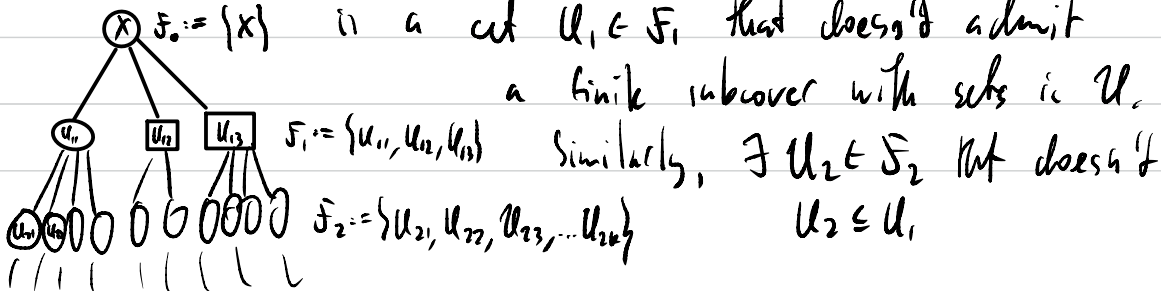 X F₀ := {X} is a set U₁ ∈ F₁ that doesn't admit
a finite subcover with sets in U.
U₁₁ U₁₂ U₁₃ F₁ := {U₁₁, U₁₂, U₁₃} Similarly, ∃ U₂ ∈ F₂ that doesn't
U₂₁ U₂₂ F₂ := {U₂₁, U₂₂, U₂₃, ... U₂ₖ} U₂ ⊆ U₁